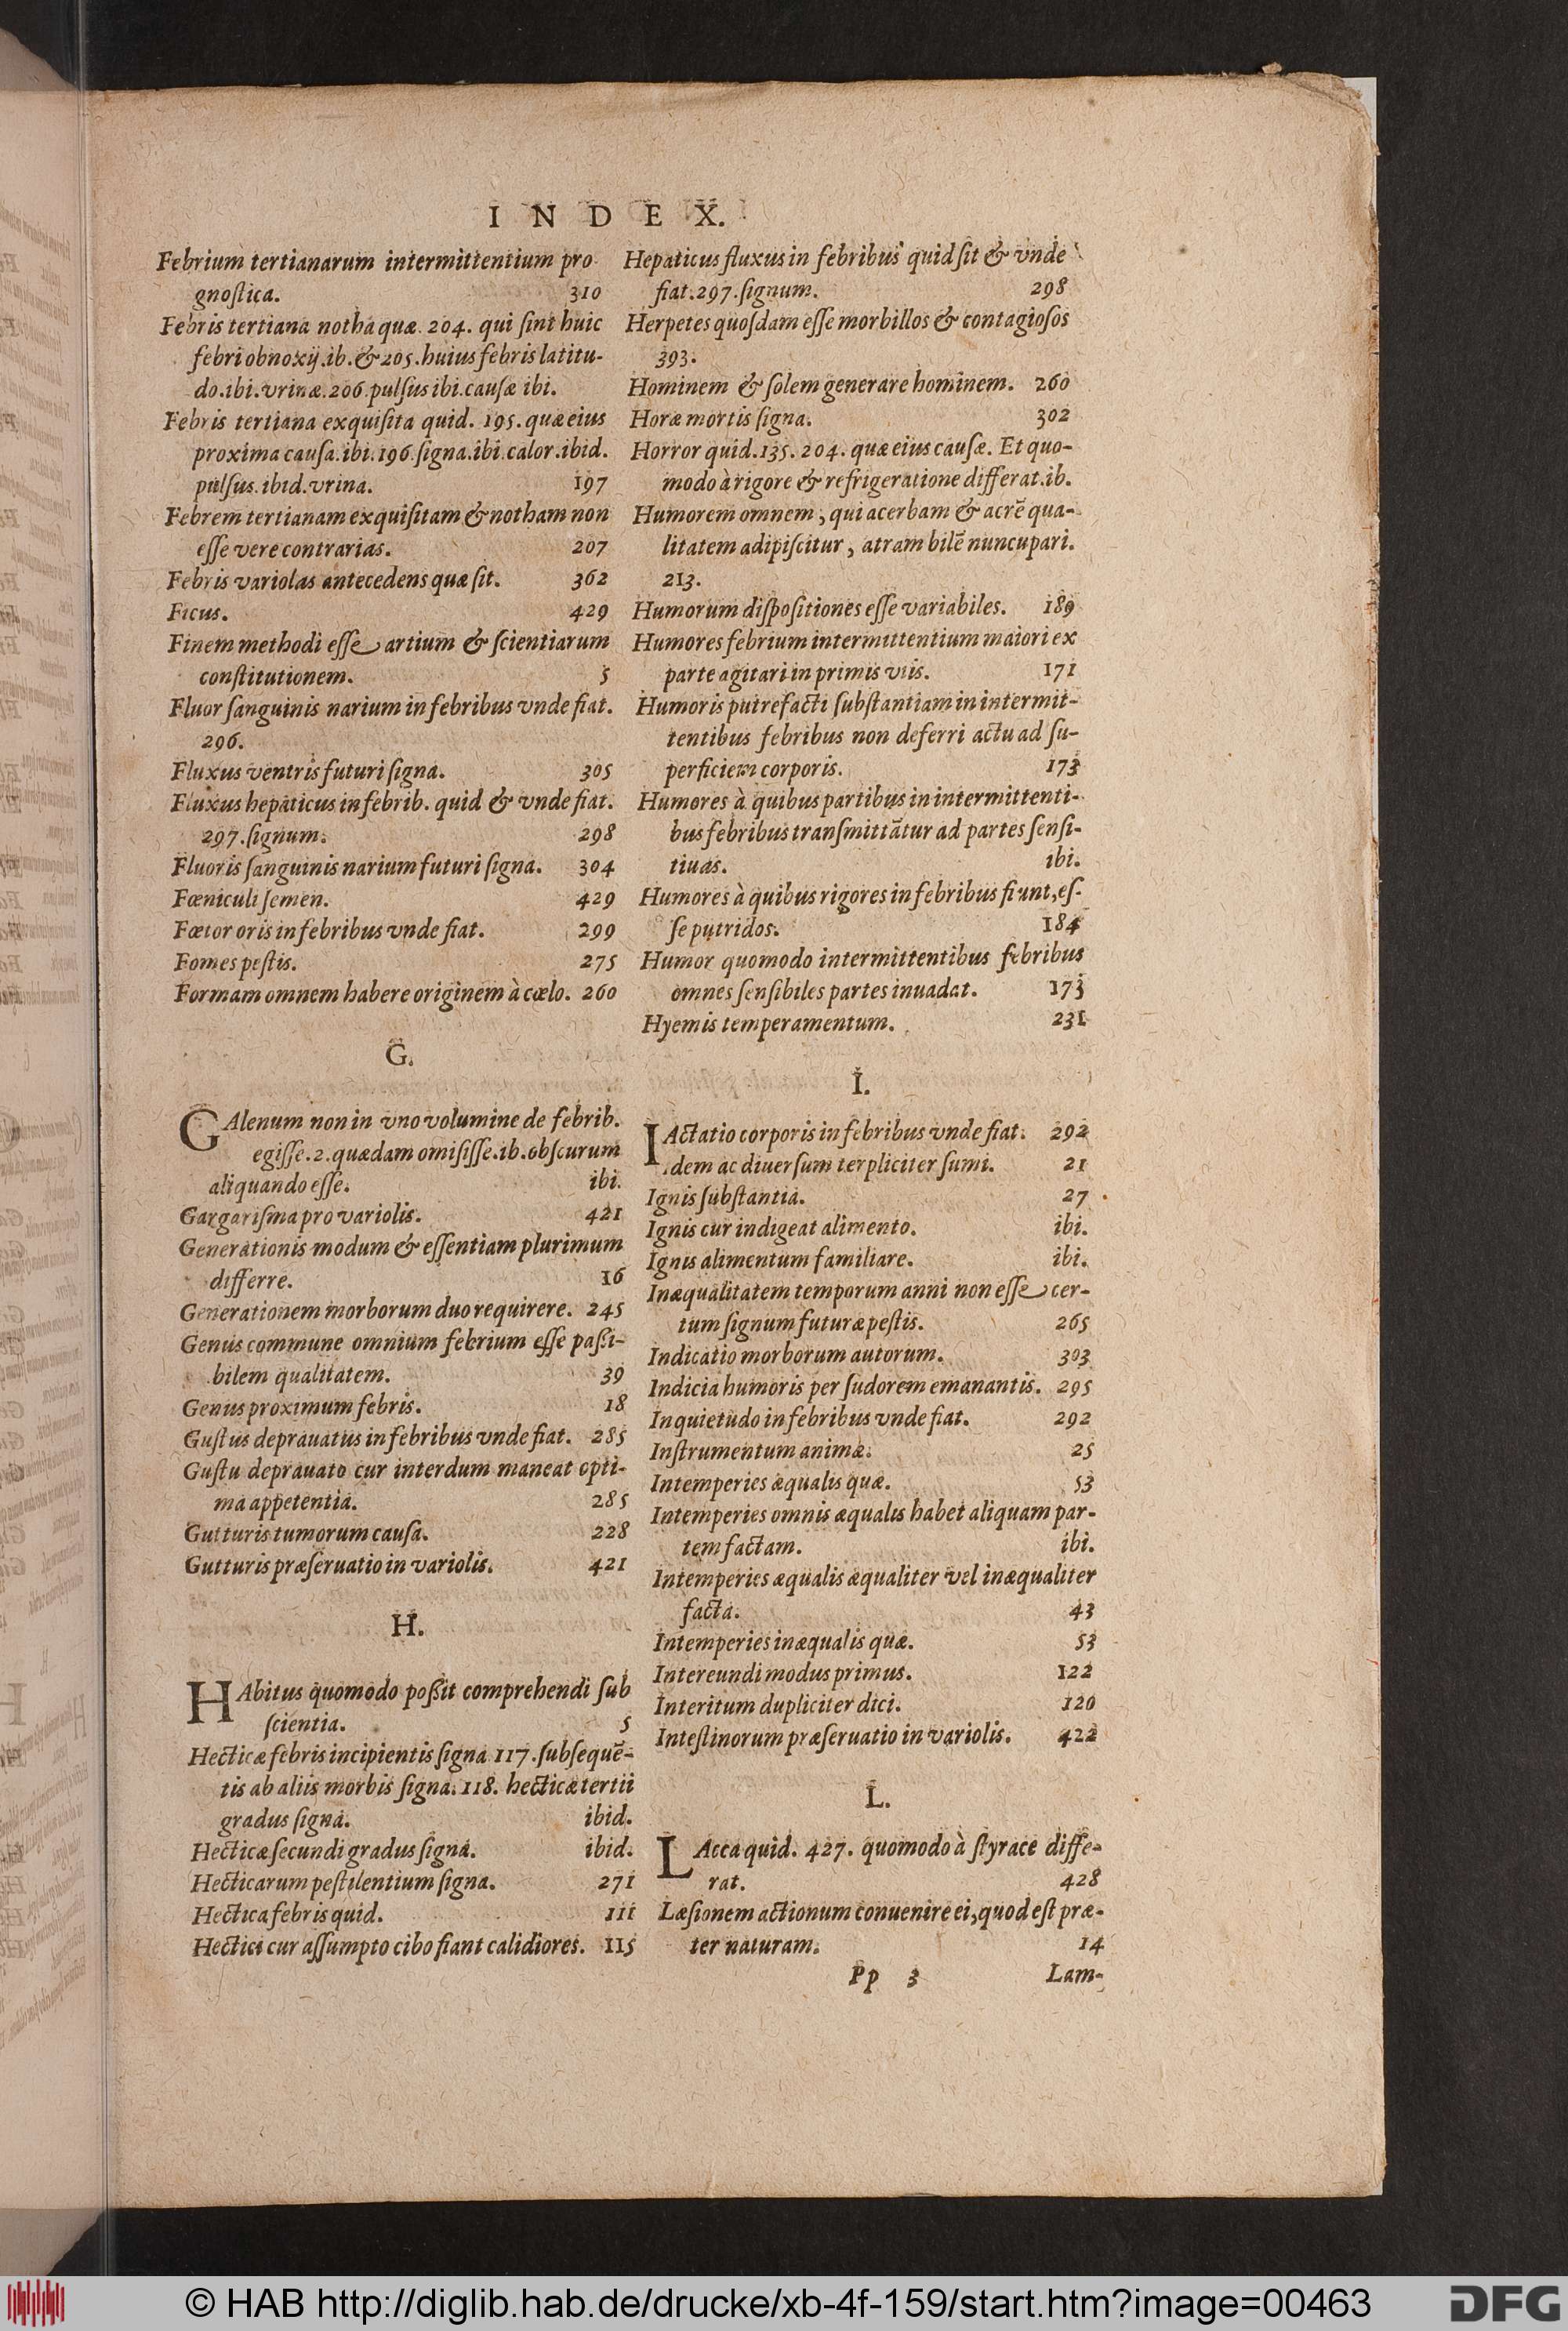 INDEX.
Febrium tertianarum intermittentium pro
gnoſtica. 310
Febris tertiana notha quæ. 204. qui ſint huic
febri obnoxij. ib. & 205. huius febris latitu-
do. ibi. vrinæ. 206. pulſus ibi. cauſæ ibi.
Febris tertiana exquiſita quid. 195. quæ eius
proxima cauſa. ibi. 196. ſigna. ibi. calor. ibid.
pulſus. ibid. vrina. 197
Febrem tertianam exquiſitam & notham non
eſſe vere contrarias. 207
Febris variolas antecedens quæ ſit. 362
Ficus. 429
Finem methodi eſſe artium & ſcientiarum
conſtitutionem. 5
Fluor ſanguinis narium in febribus vnde fiat.
296.
Fluxus ventris futuri ſigna. 305
Fluxus hepaticus in febrib. quid & vnde fiat.
297. ſignum. 298
Fluoris ſanguinis narium futuri ſigna. 304
Fœniculi ſemen. 429
Fœtor oris in febribus vnde fiat. 299
Fomes peſtis. 275
Formam omnem habere originem à cœlo. 260
G.
GAlenum non in vno volumine de febrib.
egiſſe. 2. quædam omiſiſſe. ib. obſcurum
aliquando eſſe. ibi.
Gargariſma pro variolis. 421
Generationis modum & eſſentiam plurimum
differre. 16
Generationem morborum duo requirere. 245
Genus commune omnium febrium eſſe paßi-
bilem qualitatem. 39
Genus proximum febris. 18
Guſtus deprauatus in febribus vnde fiat. 285
Guſtu deprauato cur interdum maneat opti-
ma appetentia. 285
Gutturis tumorum cauſa. 228
Gutturis præſeruatio in variolis. 421
H.
HAbitus quomodo poßit comprehendi ſub
ſcientia. 5
Hecticæ febris incipientis ſigna 117. ſubſequẽ-
tis ab aliis morbis ſigna. 118. hecticæ tertii
gradus ſigna. ibid.
Hecticæ ſecundi gradus ſigna. ibid.
Hecticarum peſtilentium ſigna. 271
Hectica febris quid. 111
Hectici cur aſſumpto cibo fiant calidiores. 115
Hepaticus fluxus in febribus quid ſit & vnde
fiat. 297. ſignum. 298
Herpetes quoſdam eſſe morbillos & contagioſos
393.
Hominem & ſolem generare hominem. 260
Horæ mortis ſigna. 302
Horror quid. 135. 204. quæ eius cauſæ. Et quo-
modo à rigore & refrigeratione differat. ib.
Humorem omnem, qui acerbam & acrẽ qua-
litatem adipiſcitur, atram bilẽ nuncupari.
213.
Humorum diſpoſitiones eſſe variabiles. 189
Humores febrium intermittentium maiori ex
parte agitari in primis viis. 171
Humoris putrefacti ſubſtantiam in intermit-
tentibus febribus non deferri actu ad ſu-
perficiem corporis. 173
Humores à quibus partibus in intermittenti-
bus febribus tranſmittãtur ad partes ſenſi-
tiuas. ibi.
Humores à quibus rigores in febribus fiunt, eſ-
ſe putridos. 184
Humor quomodo intermittentibus febribus
omnes ſenſibiles partes inuadat. 173
Hyemis temperamentum. 231
I.
IActatio corporis in febribus vnde fiat. 292
Idem ac diuerſum terpliciter ſumi. 21
Ignis ſubſtantia. 27
Ignis cur indigeat alimento. ibi.
Ignis alimentum familiare. ibi.
Inæqualitatem temporum anni non eſſe cer-
tum ſignum futuræ peſtis. 265
Indicatio morborum autorum. 303
Indicia humoris per ſudorem emanantis. 295
Inquietudo in febribus vnde fiat. 292
Inſtrumentum animæ. 25
Intemperies æqualis quæ. 53
Intemperies omnis æqualis habet aliquam par-
tem factam. ibi.
Intemperies æqualis æqualiter vel inæqualiter
facta. 43
Intemperies inæqualis quæ. 53
Intereundi modus primus. 122
Interitum dupliciter dici. 120
Inteſtinorum præſeruatio in variolis. 422
L.
LAcca quid. 427. quomodo à ſtyrace diffe-
rat. 428
Læſionem actionum conuenire ei, quod eſt præ-
ter naturam. 14
Pp 3 Lam-
© HAB http://diglib.hab.de/drucke/xb-4f-159/start.htm?image=00463
DFG